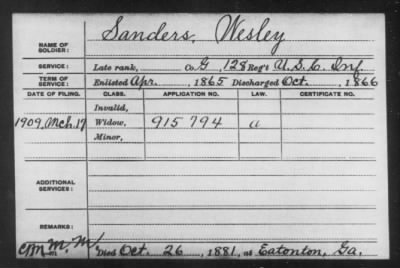 NAME OF SOLDIER: Sanders, Wesley
SERVICE: Late rank, Co. G, 128 Reg't U.S.C. Inf.
TERM OF SERVICE: Enlisted Apr., 1865 Discharged Oct., 1866
DATE OF FILING. CLASS. APPLICATION NO. LAW. CERTIFICATE NO.
Invalid,
1909, Mch. 17 Widow, 915794 a
Minor,
ADDITIONAL SERVICES:
REMARKS:
Died Oct. 26, 1881, at Eatonton, Ga.